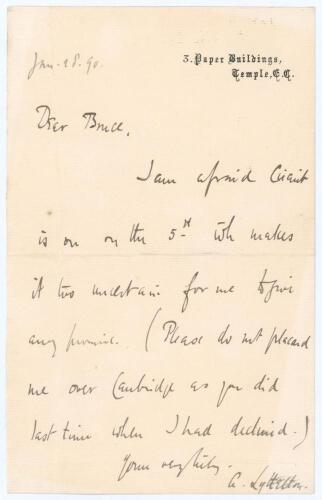 Jan. 28. 90.
3. Paper Buildings,
Temple, E.C.
Dear Bruce,
I am afraid Circuit
is on on the 5th wh makes
it too uncertain for me to give
any promise. (Please do not placard
me over Cambridge as you did
last time when I had declined.)
Yours very truly.
A. Lyttelton.